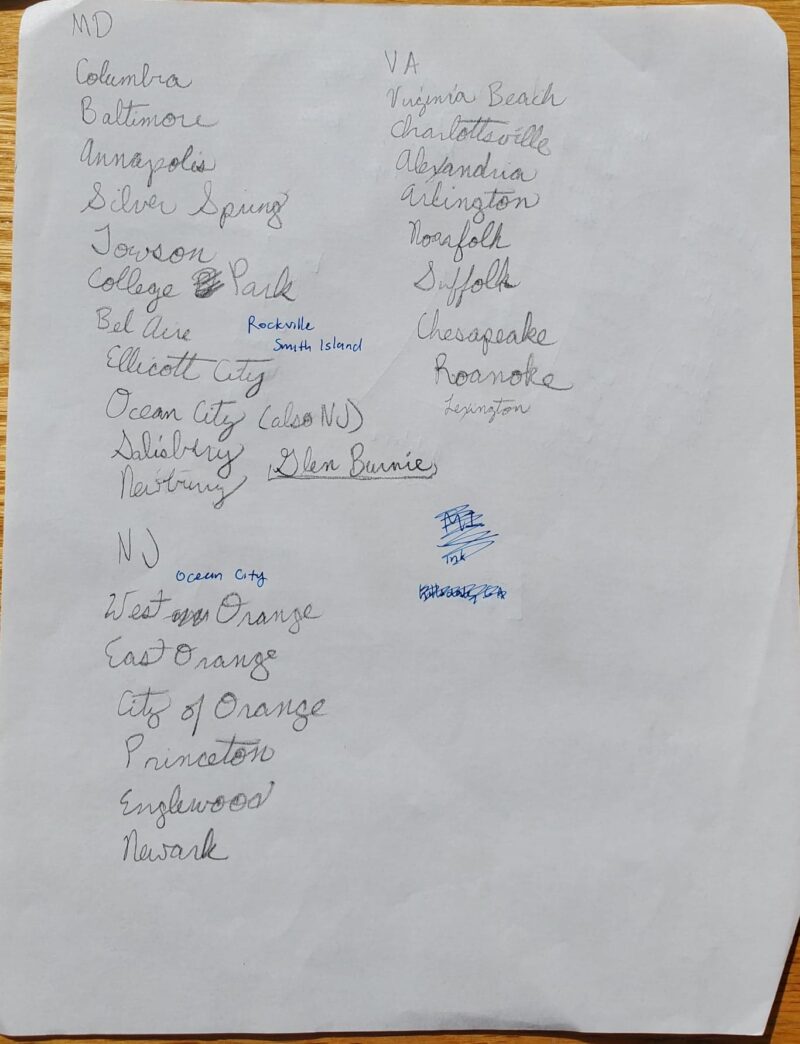 MD
Columbia
Baltimore
Annapolis
Silver Spring
Towson
College Park
Bel Aire
Rockville
Smith Island
Ellicott City
Ocean City (also NJ)
Salisbury
Glen Burnie
NJ
Ocean City
West Orange
East Orange
City of Orange
Princeton
Englewood
Newark
VA
Virginia Beach
Charlottsville
Alexandria
Arlington
Noarfolk
Suffolk
Chesapeake
Roanoke
Lexington
Ink